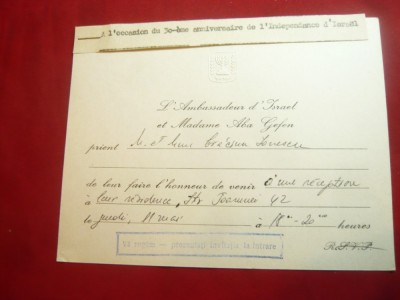 A l'occasion du 30-ème anniversaire de l'Independence d'Israël
L'Ambassadeur d'Israel
et Madame Aba Gefen
prient M. et Mme
de leur faire l'honneur de venir à une réception
à leur résidence, Str. 42
le jeudi, 11 mai à 18 - 20 heures
R.S.V.P.
Vă rugăm - prezentați invitația la intrare